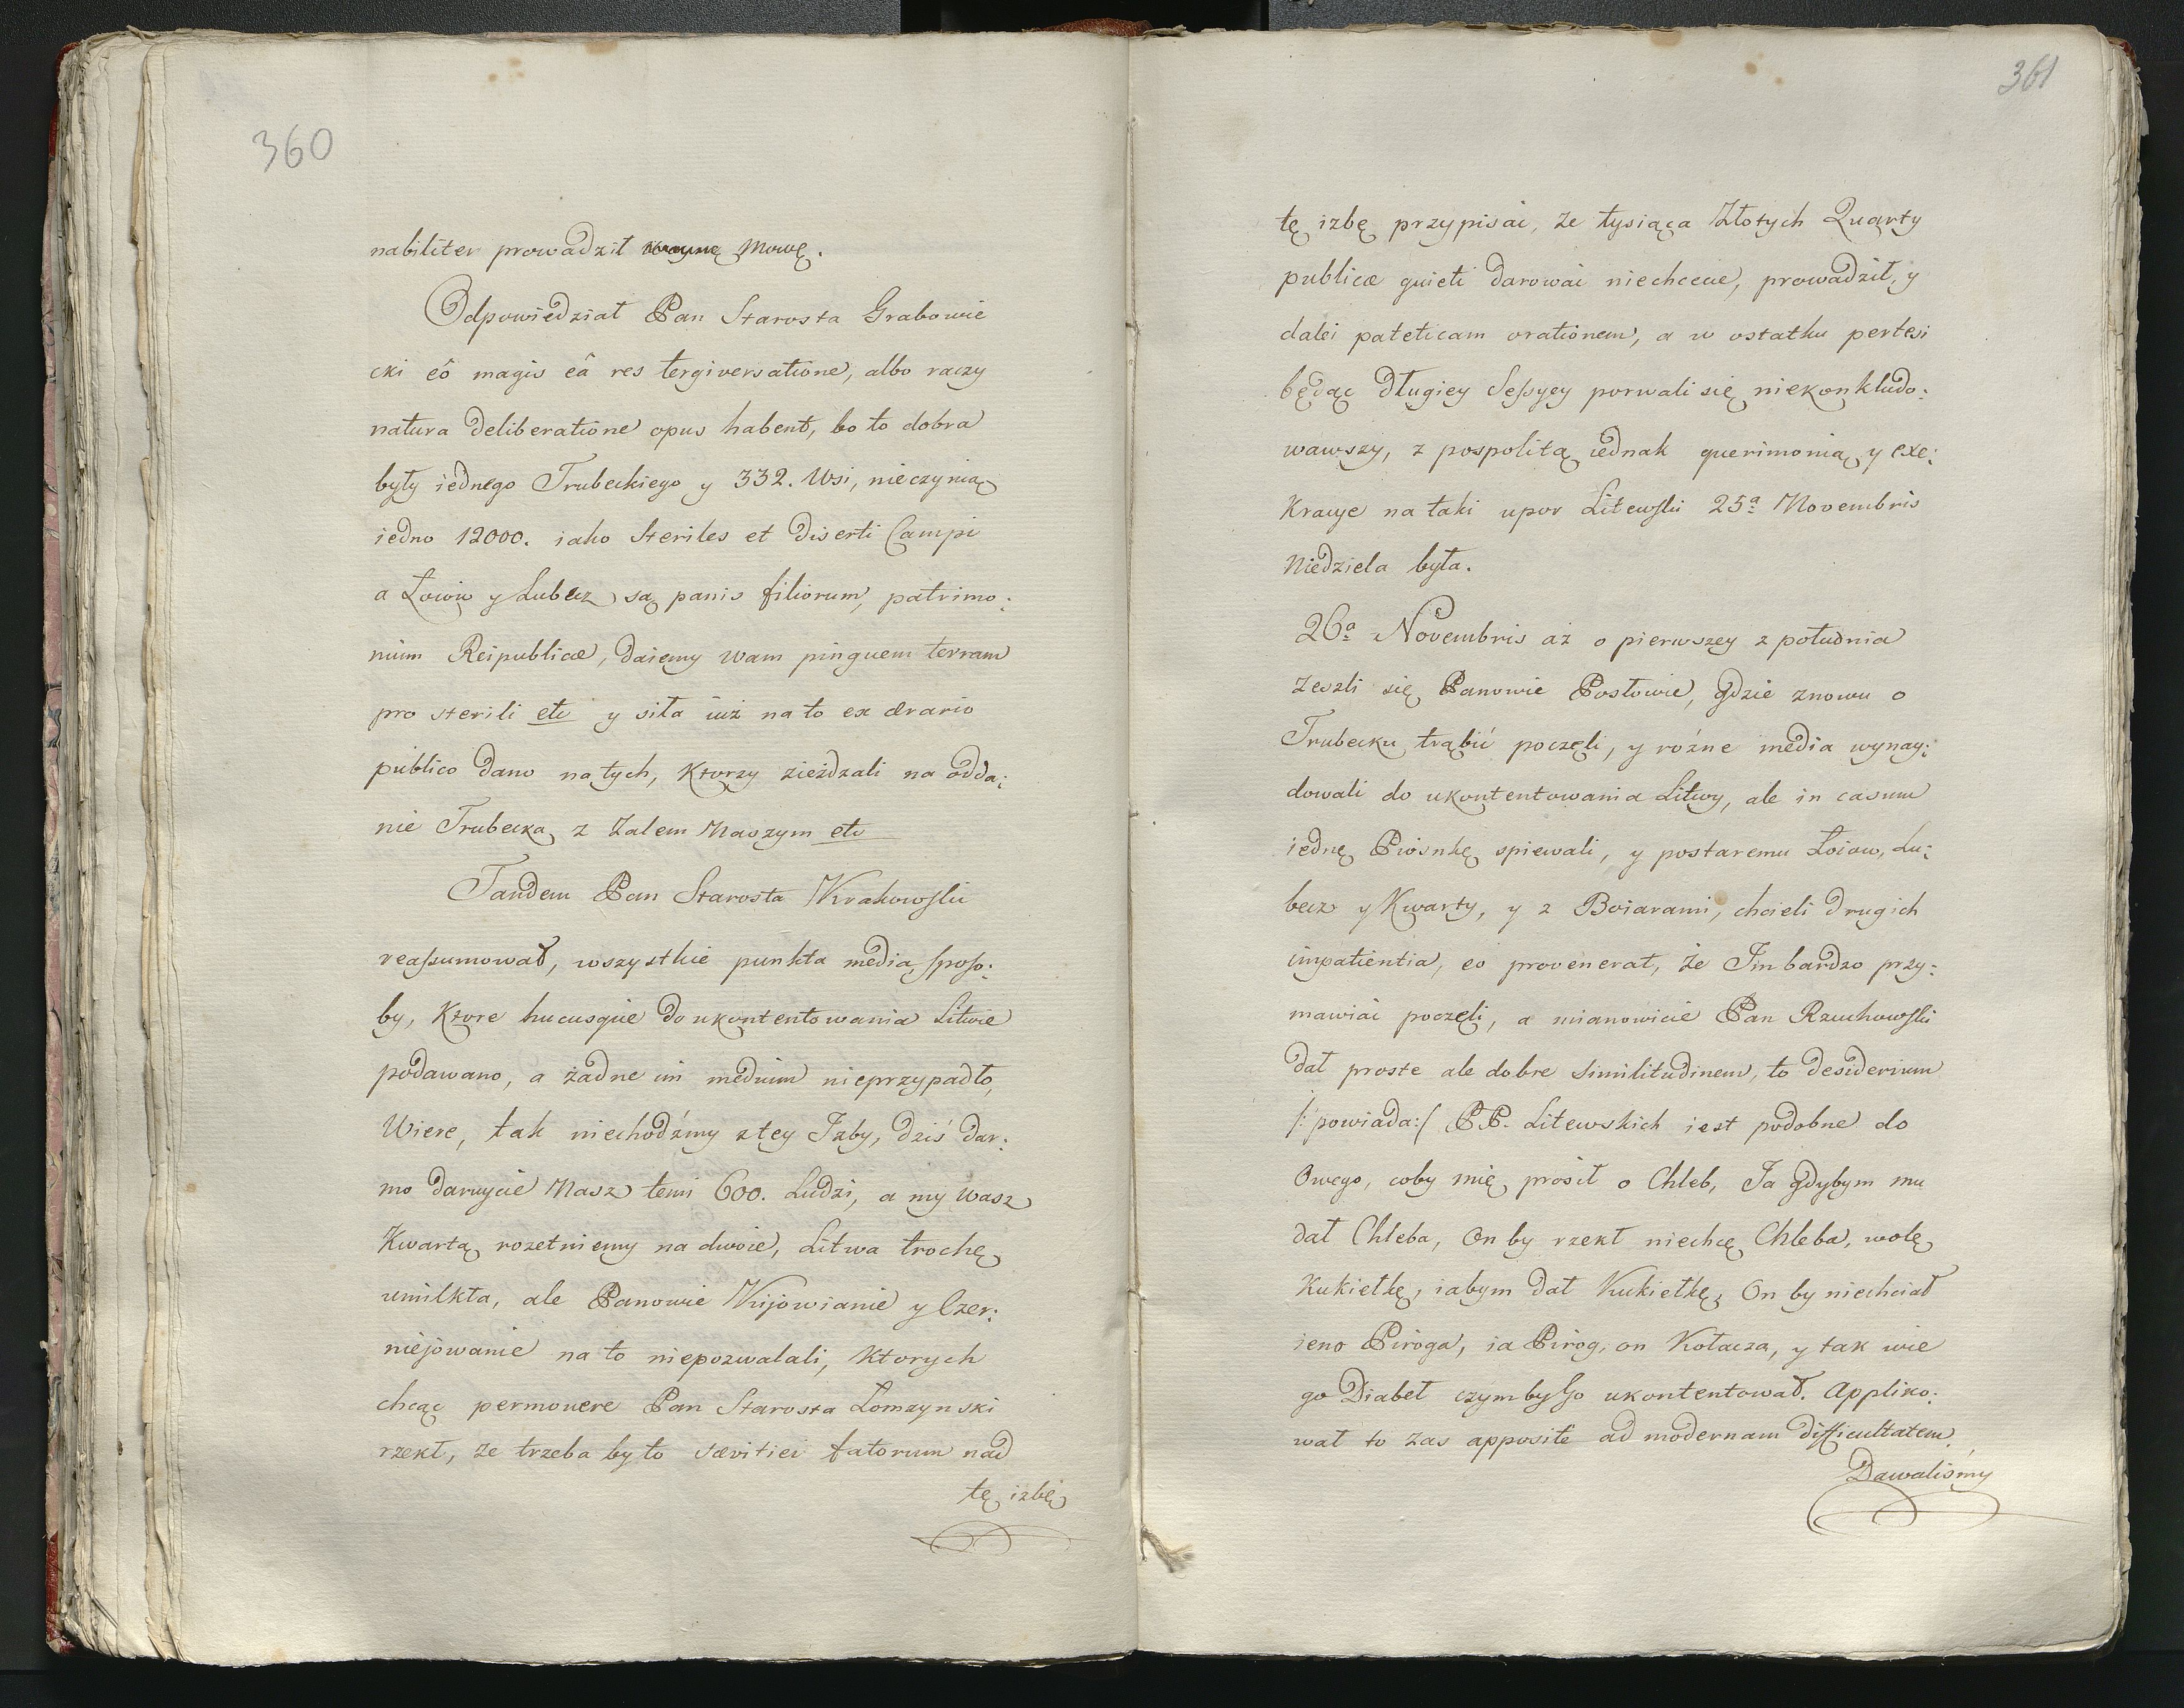 360
nabiliter prowadził Mowę.
Odpowiedział Pan Starosta Grabowie
cki eô magis eâ res tergiversatione, albo raczy
natura deliberatione opus habent, bo to dobra
były iednego Trubeckiego y 332. Wsi, nieczynią
iedno 12000. iako Steriles et diserti Campi
a Łoiow y Lubecz są panis filiorum, patrimo:
nium Reipublicæ, daiemy Wam pinguem terram
pro sterili etc y siła iuż na to ex ærario
publico dano na tych, Ktorzy zieżdzali na odda:
nie Trubecka, z Zalem Naszym etc
Tandem Pan Starosta Krakowski
reassumował, wszystkie punkta media, sposo:
by, Ktore hucusque do ukontentowania Litwie
podawano, a żadne im medium nieprzypadło,
Wiere, tak niechodźmy z tey Izby, dziś dar:
mo daruycie Nasz temi 600. Ludzi, a my Wasz
Kwartą rozetniemy na dwoie, Litwa trochę
umilkła, ale Panowie Kijowianie y Czer:
niejowanie na to niepozwalali, Ktorych
chcąc permovere Pan Starosta Łomzynski
rzekł, ze trzeba by to sævitiei fatorum nad
tę izbę
361
tę izbę przypisai, że tysiąca Złotych Quarty
publicæ quieti darowai niechcecie, prowadził, y
dalei pateticam orationem, a w ostatku pertesi
będąc długiey Sessyey porwali się niekonkludo:
wawszy, z pospolitą iednak querimonią, y exe:
Kracye na taki upor Litewski 25ª Novembris
Niedziela była.
26ª Novembris aż o pierwszey z południa
Zeszli się Panowie Posłowie, gdzie znowu o
Trubecku trąbić poczęli, y rożne media wynay:
dowali do ukontentowania Litwy, ale in casum
iednę Piosnkę spiewali, y postaremu Łoiow, Lu:
becz y Kwarty, y z Boiarami, chcieli drugich
impatientia, eo provenerat, że Im bardzo przy:
mawiai poczęli, a mianowicie Pan Rzuchowski
dał proste ale dobre similitudinem, to desiderium
/: powiada :/ PP. Litewskich iest podobne do
Owego, coby mię prosił o Chleb, Ja gdybym mu
dał Chleba, On by rzekł niechcę Chleba, wolę
Kukiełkę, iabym dał Kukiełkę, On by niechciał
ieno Piroga, ia Pirog, on Kołacza, y tak wie
go Diabeł czymby Go ukontentował. Appliko:
wał to zas apposite ad modernam difficultatem.
Dawalismy